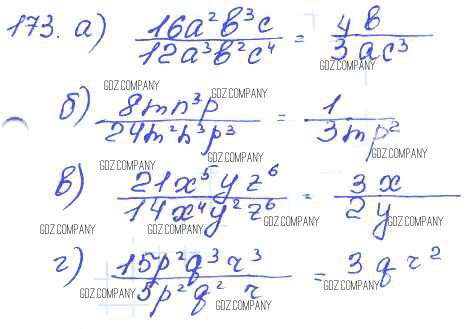 173. а) 16a²b³c / 12a³b²c⁴ = 4b / 3ac³
GDZ.COMPANY GDZ.COMPANY
GDZ.COMPANY
б) 8mn³p / 24m²n³p³ = 1 / 3mp²
GDZ.COMPANY GDZ.COMPANY GDZ.COMPANY
в) 21x⁵yz⁶ / 14x⁴y²z⁶ = 3x / 2y
GDZ.COMPANY GDZ.COMPANY GDZ.COMPANY GDZ.COMPANY
г) 15p²q³r³ / 5p²q²r = 3qr²
GDZ.COMPANY GDZ.COMPANY GDZ.COMPANY